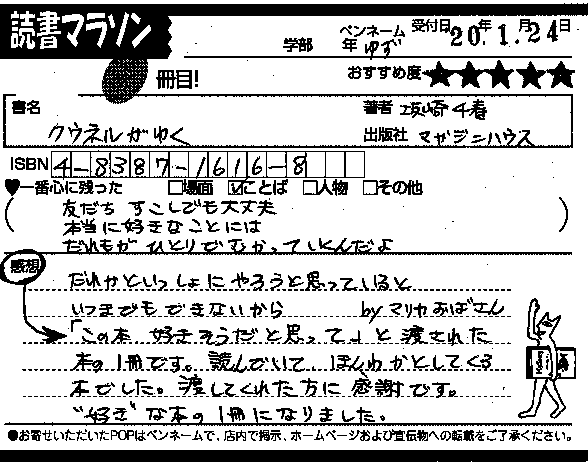 読書マラソン
学部 年 ペンネーム ゆず 受付日 20年1月24日
冊目! おすすめ度 ★★★★★
書名 クウネルがゆく
著者 坂崎千春
出版社 マガジンハウス
ISBN 4-8387-1616-8
♥一番心に残った □場面 ☑ことば □人物 □その他
友だち すこしでも大丈夫
本当に好きなことには
だれもが ひとりでむかっていくんだよ
感想
だれかといっしょにやろうと思っていると
いつまでもできないから by マリカおばさん
「この本 好きそうだと思って」と渡された
本の1冊です。読んでいて、ほんわかとしてくる
本でした。渡してくれた方に感謝です。
"好き"な本の1冊になりました。
●お寄せいただいたPOPはペンネームで、店内で掲示、ホームページおよび宣伝物への転載をご了承ください。